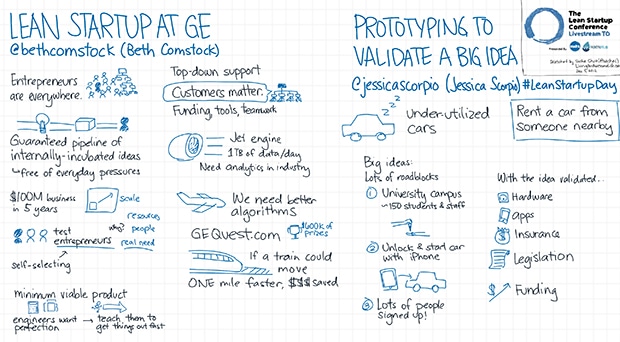 LEAN STARTUP AT GE
@bethcomstock (Beth Comstock)
Entrepreneurs
are everywhere.
Guaranteed pipeline of
internally-incubated ideas
↳ free of everyday pressures
$100M business
in 5 years
scale
resources
people
real need
why?
test
entrepreneurs
self-selecting
minimum viable product
engineers want → teach them to
perfection get things out fast
Top-down support
Customers matter.
Funding, tools, teamwork
Jet engine
1TB of data/day
Need analytics in industry
We need better
algorithms
GEQuest.com
$600k of
prizes
If a train could
move
ONE mile faster, $$$ saved
PROTOTYPING TO
VALIDATE A BIG IDEA
@jessicascorpio (Jessica Scorpio) #LeanStartupDay
The
Lean Startup
Conference
Livestream TO
Presented by
zzz
Under-utilized
cars
Rent a car from
someone nearby
Big ideas:
Lots of roadblocks
① University campus
~150 students & staff
② Unlock & start car
with iPhone
③ Lots of people
signed up!
With the idea validated...
Hardware
apps
Insurance
Legislation
Funding